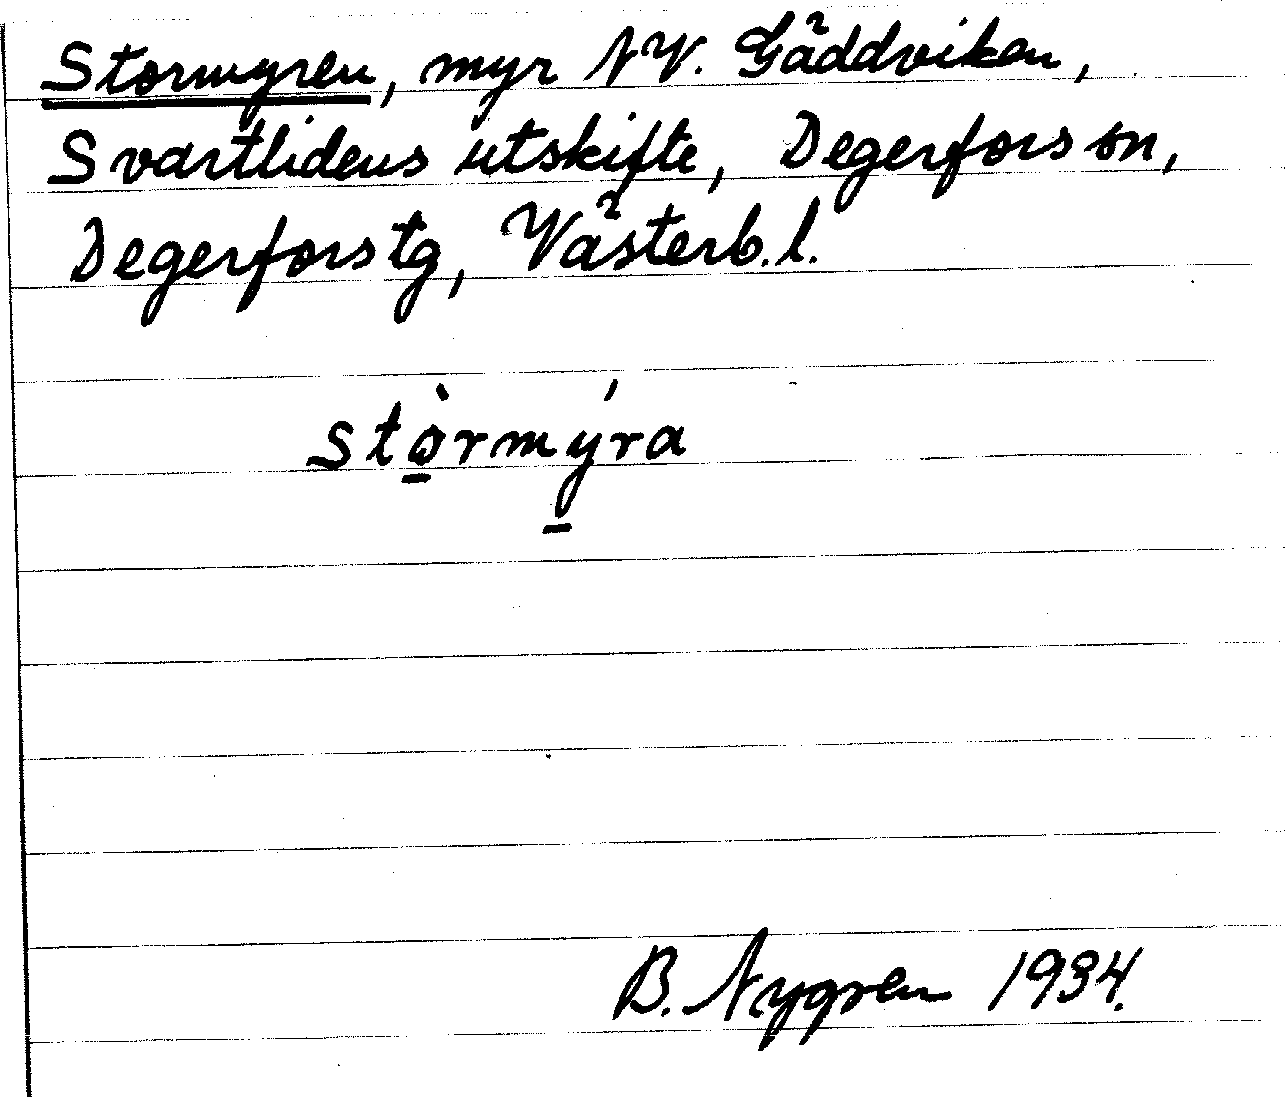 Stormyren, myr NV. Gäddviken,
Svartlidens utskifte, Degerfors sn,
Degerfors tg, Västerb.l.
stò̱rmý̱ra
B. Nygren 1934.